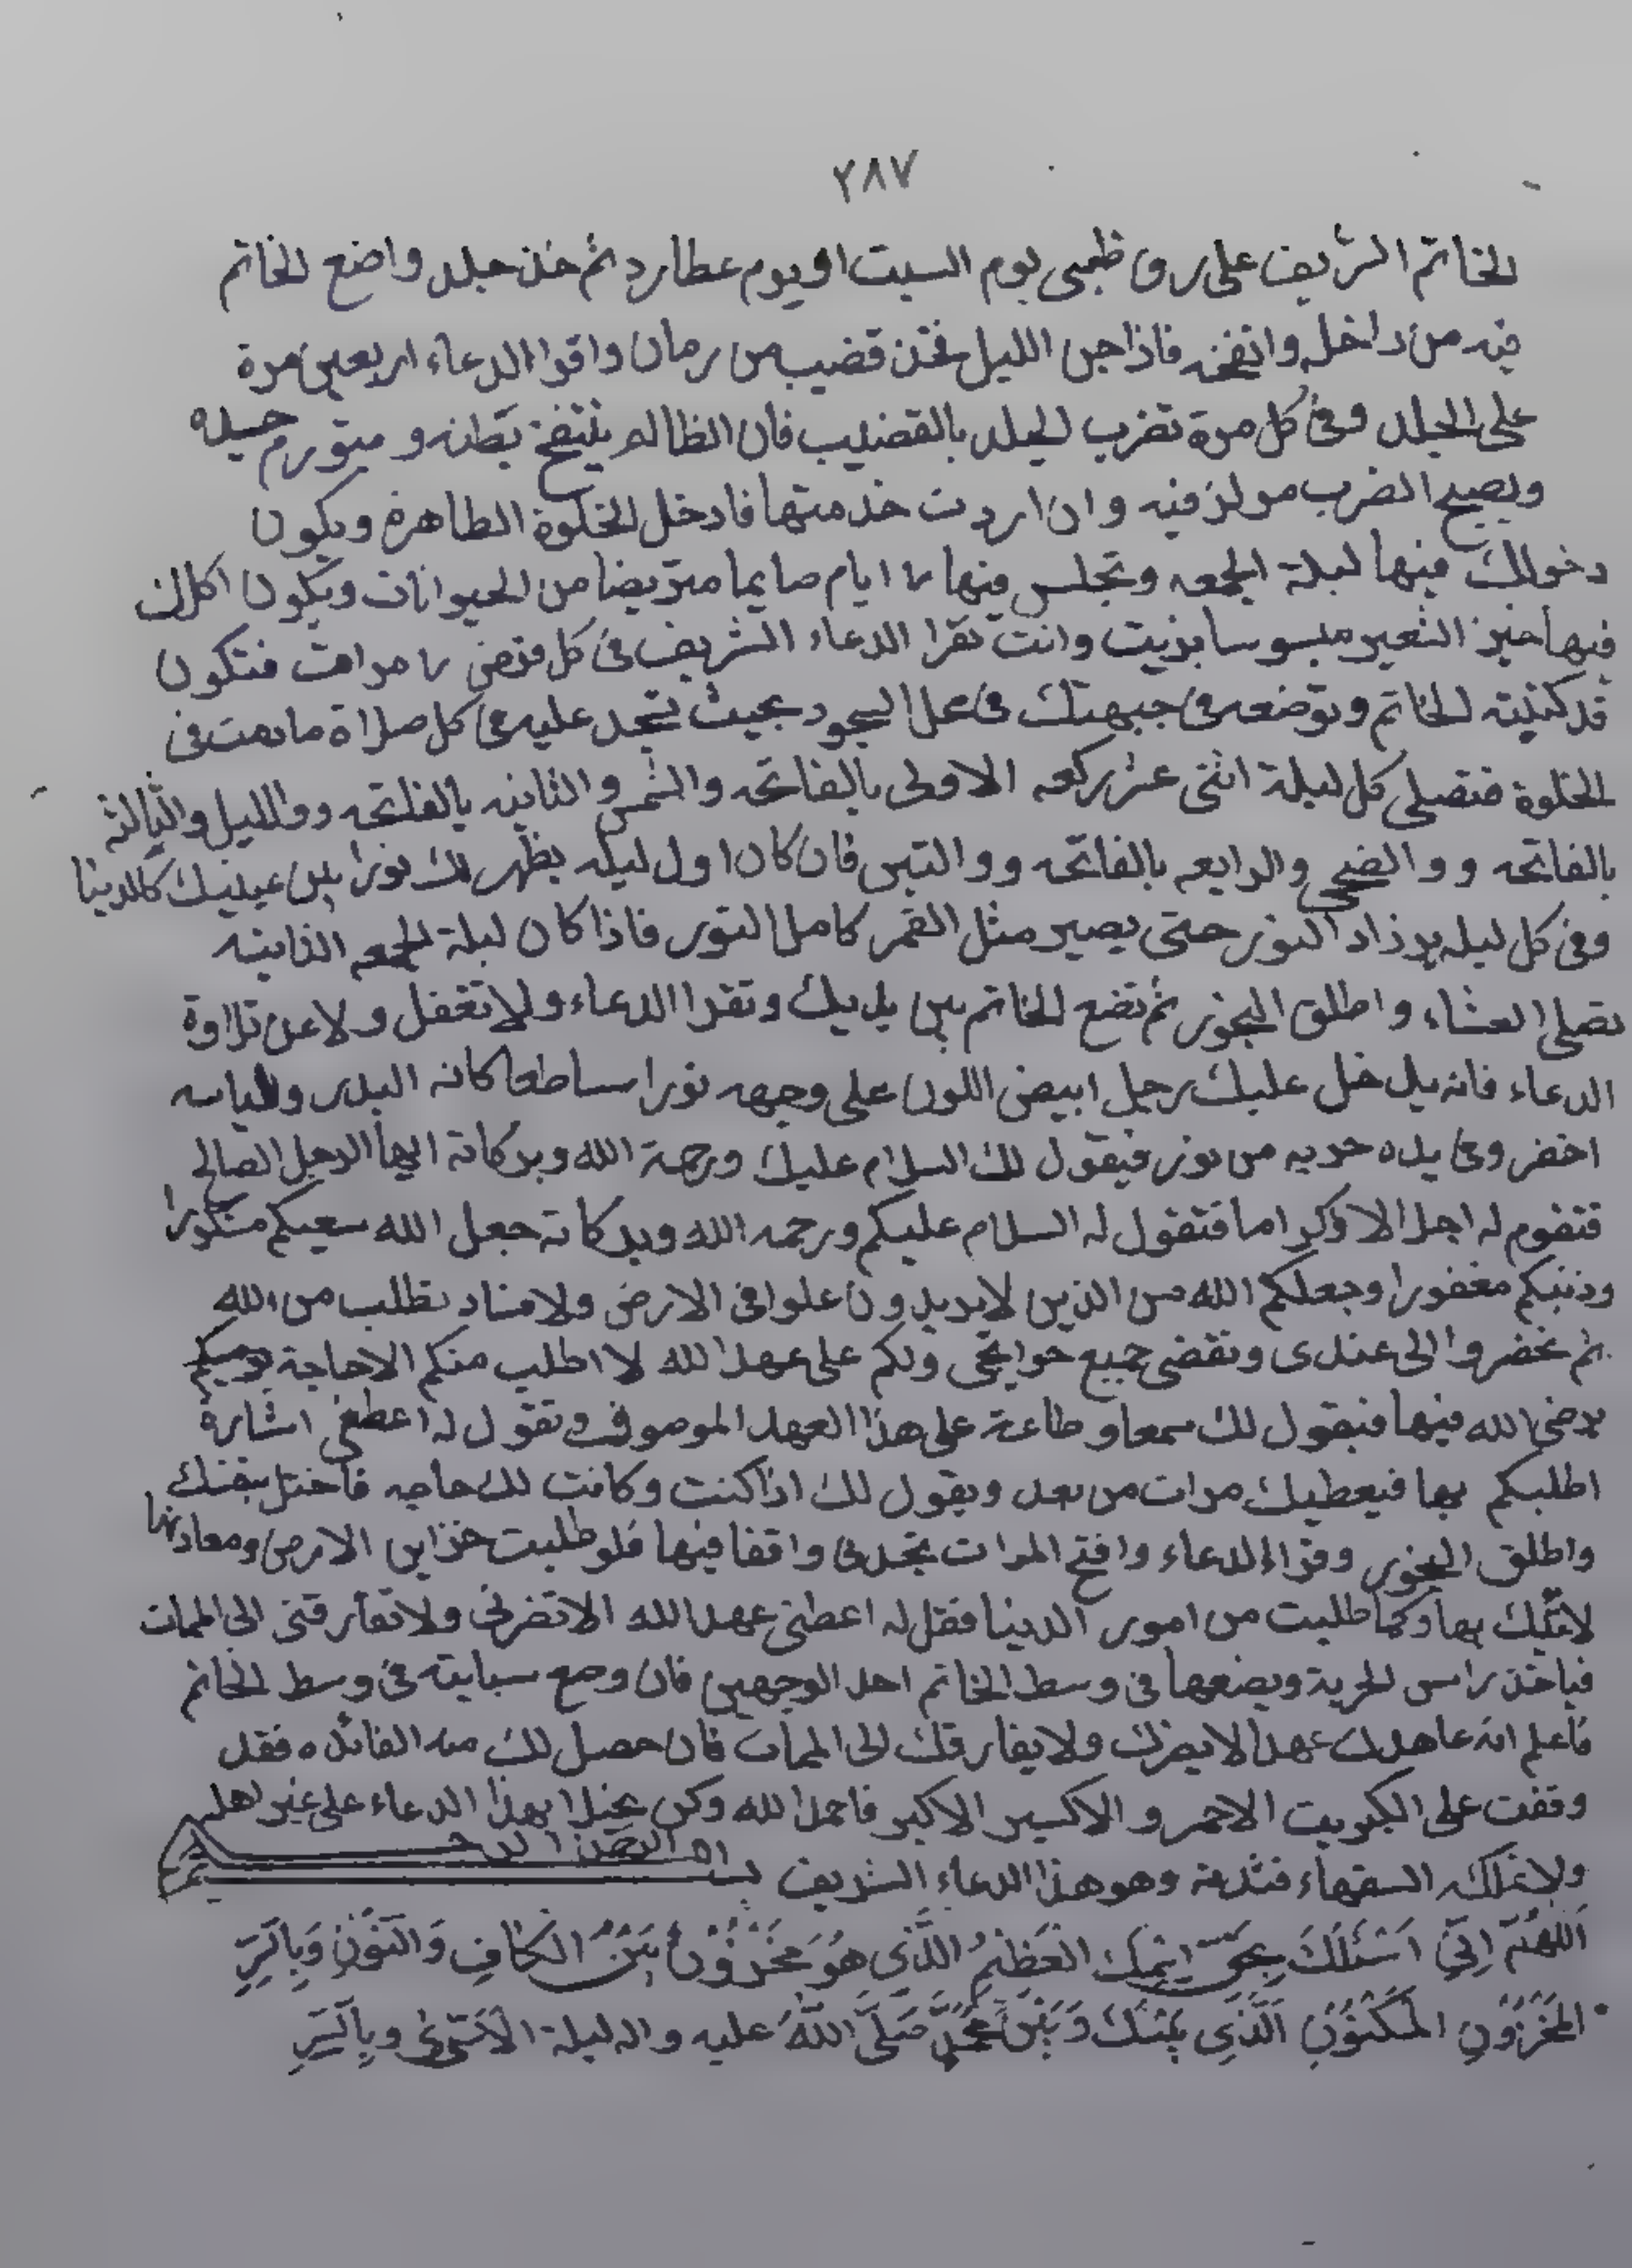 ٢٨٧
الخاتم الشريف على رق ظبى يوم السبت او يوم عطارد ثم خذ جلد واضع الخاتم
فيه من داخله وانفخه فاذا جن الليل فخذ قضيب من رمان واقرا الدعاء اربعين مرة
على الجلد وفى كل مرة تضرب الجلد بالقضيب فان الظالم ينتفخ بطنه و ميتورم جسده
ويصبح الضرب مولز فيه وان اردت خدمتها فادخل الخلوة الطاهرة ويكون
دخولك فيها ليلة الجمعه وتجلس فيها ٧ ايام صايما متريضا من الحيوانات ويكون اكلك
فيها خبز الشعير ميسوسا بزيت وانت تقرا الدعاء الشريف فى كل فرض ٧ مرات فتكون
قد كتبته الخاتم وتوضعه فى جبهتك فى محل السجود بحيث تسجد عليه فى كل صلاة مادمت فى
الخلوة فتصلى كل ليلة اثنى عشر ركعه الاولى بالفاتحه والشمس والثانيه بالفاتحه ووالليل والثالثه
بالفاتحه ووالضحى والرابعه بالفاتحه ووالتين فان كان اول ليله يظهر لك نورا بين عينيك كالدينا
وفى كل ليله يزداد النور حتى يصير مثل القمر كامل النور فاذا كان ليلة الجمعه الثانيه
تصلى العشاء واطلق البخور ثم تضع الخاتم بين يديك وتقرا الدعاء ولا تغفل ولا عن تلاوة
الدعاء فانه يدخل عليك رجل ابيض اللون على وجهه نورا ساطعا كانه البدر ولباسه
اخضر وفى يده حربه من نور فيقول لك السلام عليك ورحمة الله وبركاته ايها الرجل الصالح
فتقوم له اجلالا وكراما فتقول له السلام عليكم ورحمه الله وبركاته جعل الله سعيكم مشكورا
وذنبكم مغفورا وجعلكم الله من الذين لا يريدون علوا فى الارض ولا فساد تطلب من الله
ثم تحضروا الى عندى وتقضى جميع حوايجى ولكم على عهد الله لا اطلب منكم الا حاجة
يرضى الله فيها فيقول لك سمعا وطاعة على هذا العهد الموصوف وتقول له اعطنى اشارة
اطلبكم بها فيعطيك مرات من بعد ويقول لك اذا كنت وكانت لك حاجه فاختل بنفسك
واطلق البخور وقرا الدعاء وافتح المرات تجدنى واقفا فيها فلو طلبت خزاين الارض ومعادنها
لاتيك بها وكما طلبت من امور الدينا فقل له اعطنى عهد الله الا تضرنى ولا تفارقنى الى الممات
فياخذ راس الحربة ويضعها فى وسط الخاتم احد الوجهين فان وضع سبابته فى وسط الخاتم
فاعلم انه عاهدك عهدا لا يضرك ولا يفارقك الى الممات فان حصل لك منه الفائده فقد
وقفت على الكبريت الاحمر والاكسير الاكبر فاحمد الله وكن بخيلا بهذا الدعاء على غير اهله
ولا تملكه السفهاء فتندمة وهو هذا الدعاء الشريف بسم الله الرحمن الرحيم
اَللهُمَّ اِنّى اَسْئَلُكَ بِحَقِّ اِسْمِكَ العَظِيْمِ الَّذِى هُوَ مَخْزُوْنُ بَيْنَ الكَافِ وَالنُوْنِ وَبِالسِرِّ
المَخْزُوْنِ المَكْنُوْنِ الَّذِى بَيْنَكَ وَبَيْنَ مُحَمَّدٍ صَلَّى اللّٰهُ عليه واله ليلة الاَسْرَى وبِالسِرِّ